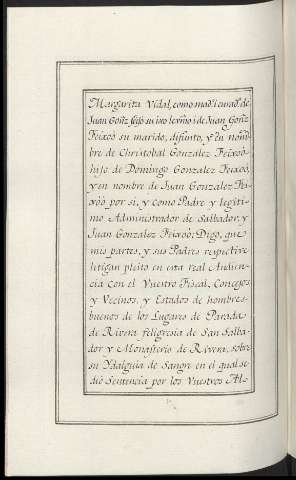 Margarita Vidal, como mad.e i curad.a de
Juan Gonz. hijo suio lexmo i de Juan Gonz
Feixoò su marido, difunto, y en nom-
bre de Christobal Gonzalez Feixoò
hijo de Domingo Gonzalez Feixoò,
y en nombre de Juan Gonzalez Fei-
xoò por si, y como Padre y legiti-
mo Administrador de Salbador, y
Juan Gonzalez Feixoò: Digo, que
mis partes, y sus Padres respective
litigan pleito en esta real Audien-
cia con el Vuestro Fiscal, Concejos
y Vecinos, y Estados de hombres-
buenos de los Lugares de Parada
de Rivera feligresia de San Salba-
dor y Monasterio de Rivera, sobre
su Ydalguia de Sangre en el qual se
diò Sentencia por los Vuestros Al-